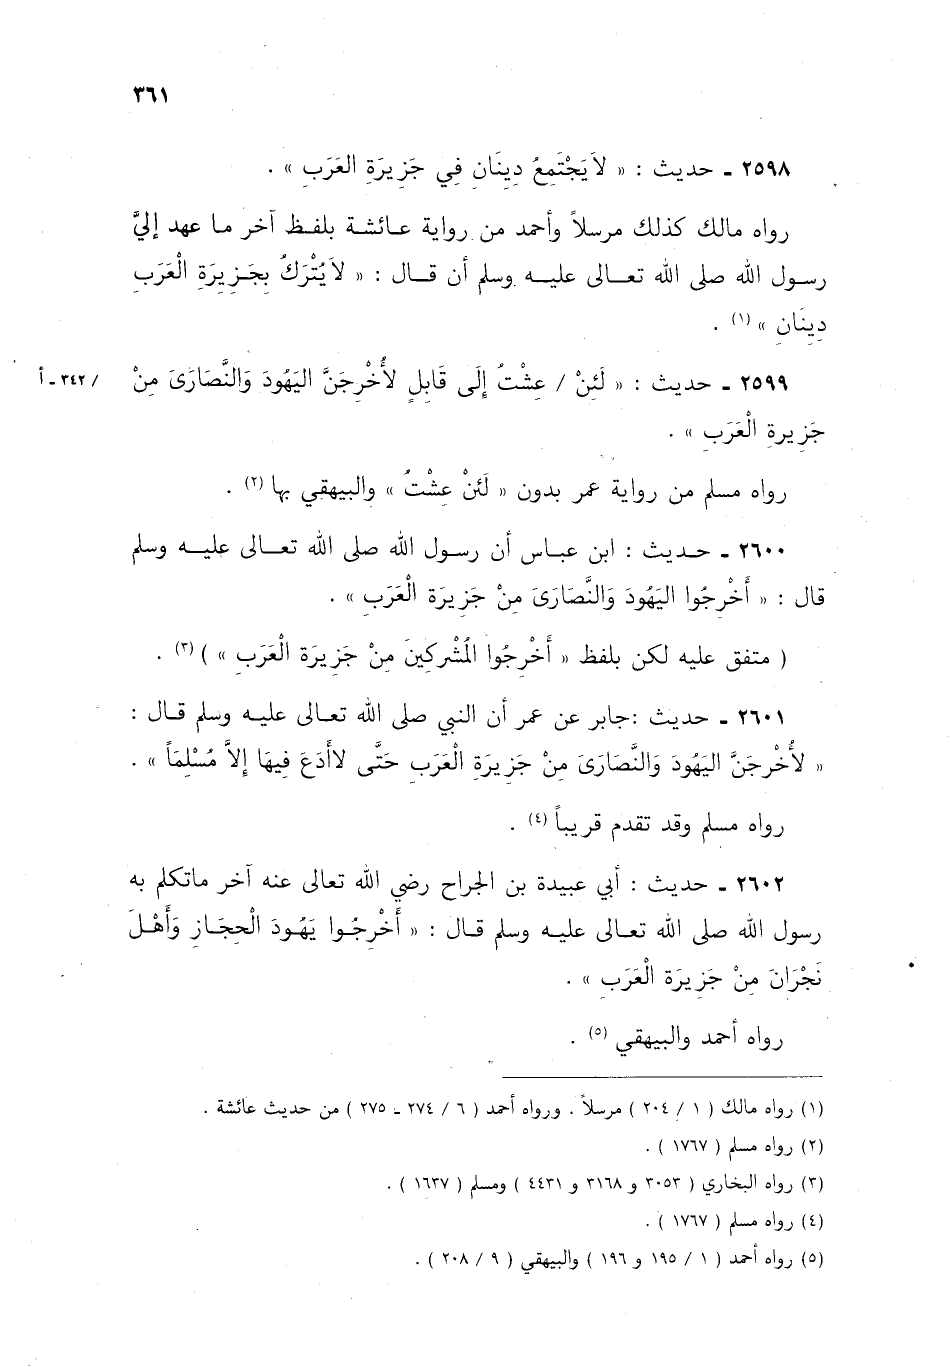 ٣٦١
٢٥٩٨ ـ حديث : « لاَ يَجْتَمِعُ دِينَانِ فِي جَزِيرَةِ العَرَبِ » .
رواه مالك كذلك مرسلاً وأحمد من رواية عائشة بلفظ آخر ما عهد إليَّ
رسول الله صلى الله تعالى عليه وسلم أن قال : « لاَ يُتْرَكُ بِجَزِيرَةِ الْعَرَبِ
دِينَانِ » (١) .
٢٥٩٩ ـ حديث : « لَئِنْ / عِشْتُ إِلَى قَابِلٍ لأُخْرِجَنَّ اليَهُودَ وَالنَّصَارَىَ مِنْ / ٣٤٢ ـ أ
جَزِيرةِ الْعَرَبِ » .
رواه مسلم من رواية عمر بدون « لَئِنْ عِشْتُ » والبيهقي بها (٢) .
٢٦٠٠ ـ حديث : ابن عباس أن رسول الله صلى الله تعالى عليه وسلم
قال : « أَخْرِجُوا اليَهُودَ وَالنَّصَارَىَ مِنْ جَزِيرَةِ الْعَرَبِ » .
( متفق عليه لكن بلفظ « أَخْرِجُوا المُشْرِكِينَ مِنْ جَزِيرَةِ الْعَرَبِ » ) (٣) .
٢٦٠١ ـ حديث :جابر عن عمر أن النبي صلى الله تعالى عليه وسلم قال :
« لأُخْرِجَنَّ اليَهُودَ وَالنَّصَارَىَ مِنْ جَزِيرَةِ الْعَرَبِ حَتَّى لاأَدَعَ فِيهَا إِلاَّ مُسْلِمَاً » .
رواه مسلم وقد تقدم قريباً (٤) .
٢٦٠٢ ـ حديث : أبي عبيدة بن الجراح رضي الله تعالى عنه آخر ماتكلم به
رسول الله صلى الله تعالى عليه وسلم قال : « أَخْرِجُوا يَهُودَ الْحِجَازِ وَأَهْلَ
نَجْرَانَ مِنْ جَزِيرَةِ الْعَرَبِ » .
رواه أحمد والبيهقي (٥) .
(١) رواه مالك ( ١ / ٢٠٤ ) مرسلاً . ورواه أحمد ( ٦ / ٢٧٤ ـ ٢٧٥ ) من حديث عائشة .
(٢) رواه مسلم ( ١٧٦٧ ) .
(٣) رواه البخاري ( ٣٠٥٣ و ٣١٦٨ و ٤٤٣١ ) ومسلم ( ١٦٣٧ ) .
(٤) رواه مسلم ( ١٧٦٧ ) .
(٥) رواه أحمد ( ١ / ١٩٥ و ١٩٦ ) والبيهقي ( ٩ / ٢٠٨ ) .